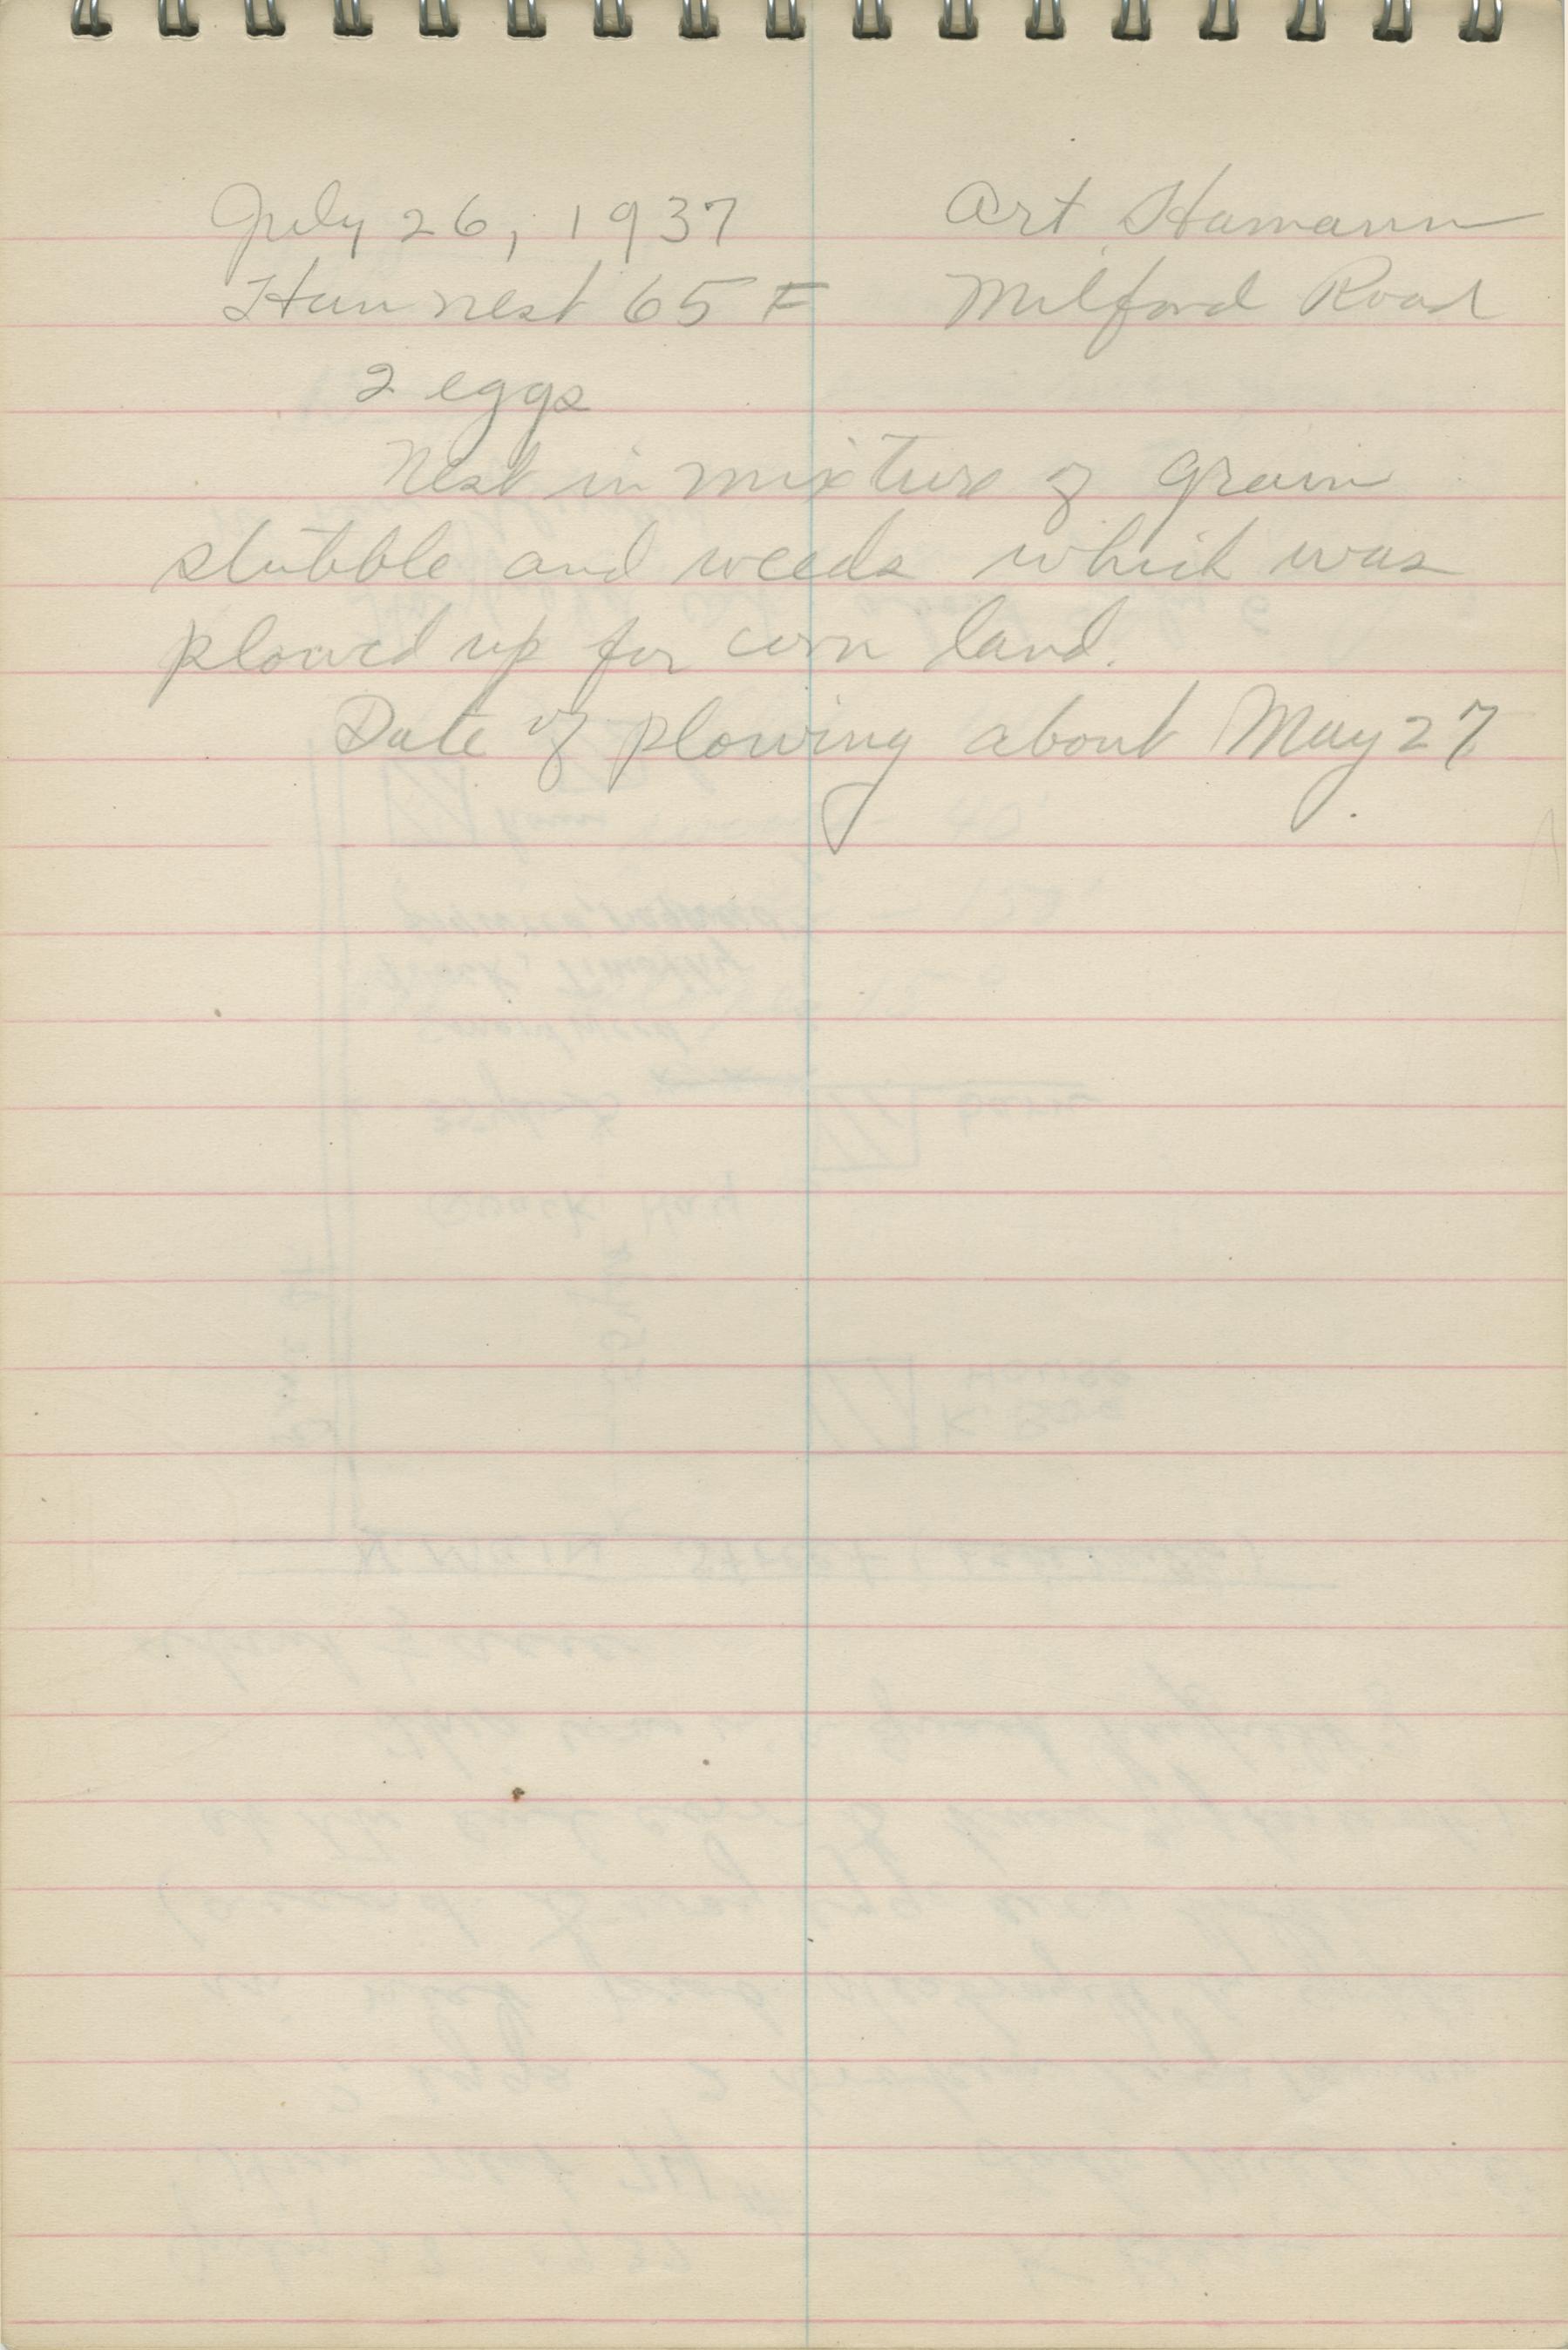 July 26, 1937 Art Hamann
Hun nest 65 F Milford Road
2 eggs
Nest in mixture of grain
stubble and weeds which was
plowed up for corn land.
Date of plowing about May 27.